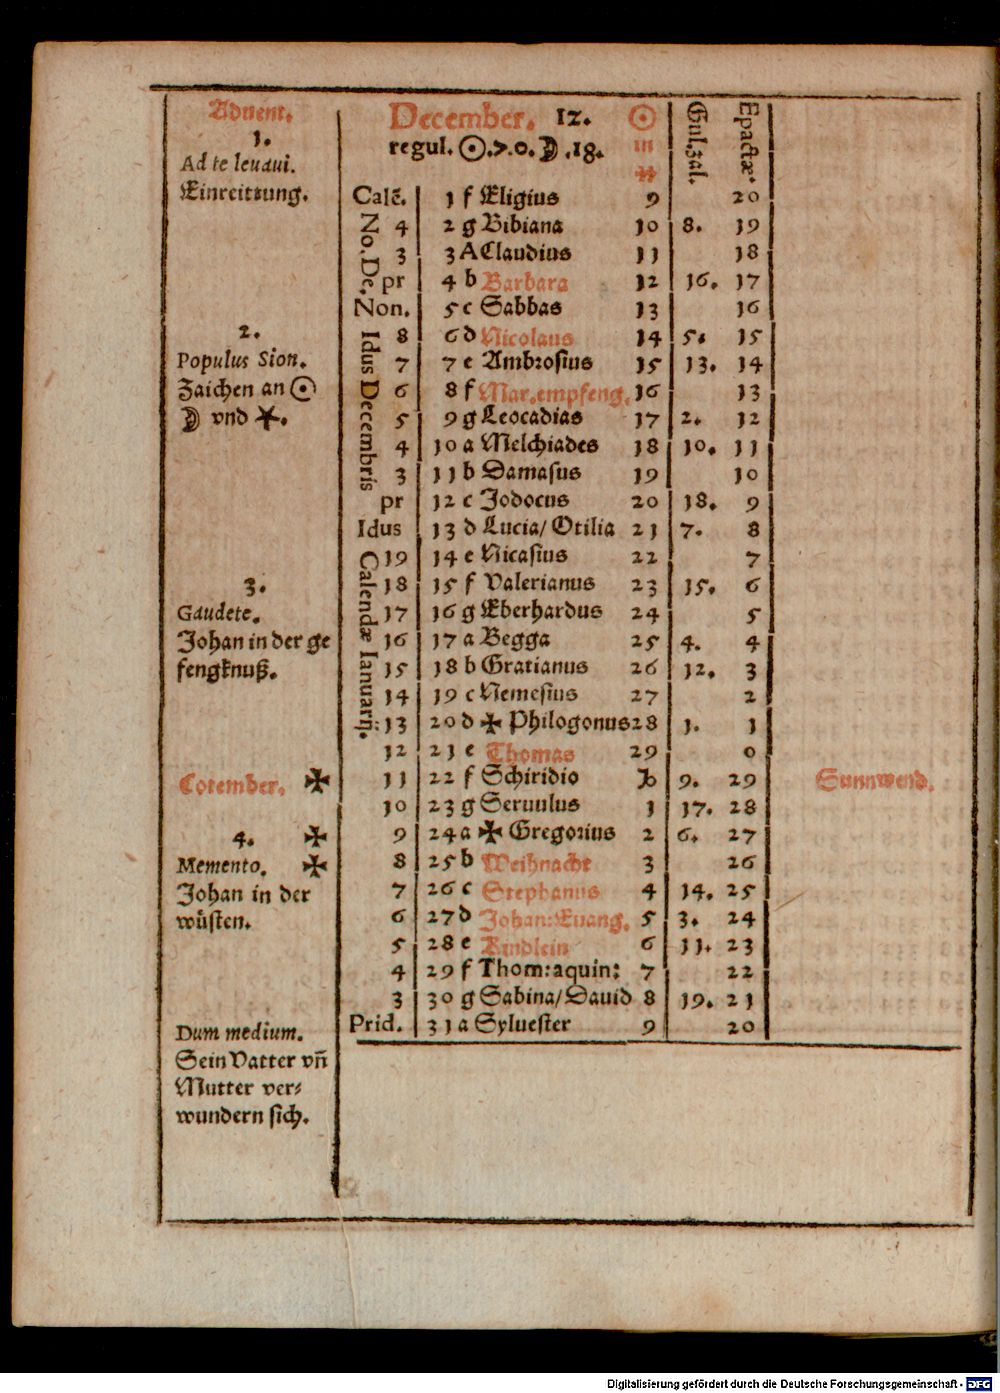 Aduent.
1.
Ad te leuaui.
Einreittung.
2.
Populus Sion.
Zaichen an ☉
☽ vnd ★.
3.
Gaudete.
Johan in der ge
fengknuß.
Cotember. ✠
4. ✠
Memento. ✠
Johan in der
wůsten.
Dum medium.
Sein Vatter vn̄
Mutter ver⸗
wundern sich.
December. 12. ☉ in ♐
regul. ☉.7.0. ☽.18.
Gul. zal.
Epactæ.
Calē. 1 f Eligius 9 20
No. De.
4 2 g Bibiana 10 8. 19
3 3 A Claudius 11 18
pr 4 b Barbara 12 16. 17
Non. 5 c Sabbas 13 16
Idus Decembris
8 6 d Nicolaus 14 5. 15
7 7 e Ambrosius 15 13. 14
6 8 f Mar.empfeng. 16 13
5 9 g Leocadias 17 2. 12
4 10 a Melchiades 18 10. 11
3 11 b Damasus 19 10
pr 12 c Jodocus 20 18. 9
Idus 13 d Lucia/ Otilia 21 7. 8
Calendæ Ianuarij.
19 14 e Nicasius 22 7
18 15 f Valerianus 23 15. 6
17 16 g Eberhardus 24 5
16 17 a Begga 25 4. 4
15 18 b Gratianus 26 12. 3
14 19 c Nemesius 27 2
13 20 d ✠ Philogonus 28 1. 1
12 21 e Thomas 29 0
11 22 f Schiridio ♑ 9. 29 Sunnwend.
10 23 g Seruulus 1 17. 28
9 24 a ✠ Gregorius 2 6. 27
8 25 b Weihnacht 3 26
7 26 c Stephanus 4 14. 25
6 27 d Johan: Euang. 5 3. 24
5 28 e Kindlein 6 11. 23
4 29 f Thom: aquin: 7 22
3 30 g Sabina/ Dauid 8 19. 21
Prid. 31 a Syluester 9 20
Digitalisierung gefördert durch die Deutsche Forschungsgemeinschaft - DFG